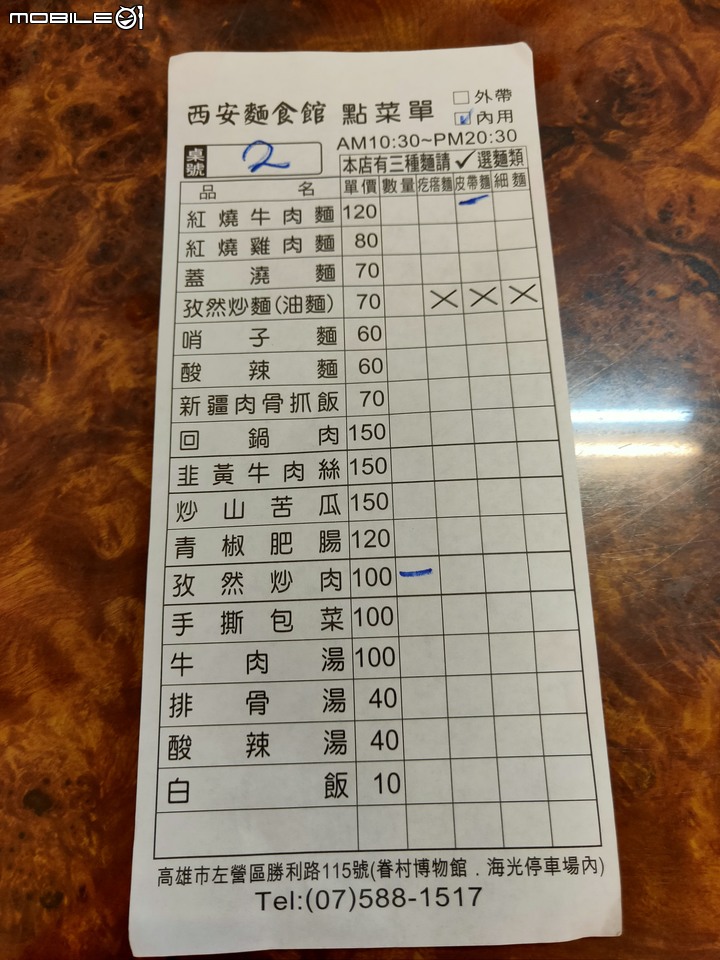 MOBILE01
西安麵食館 點菜單
□外帶
☑內用
AM10:30~PM20:30
桌號 2
本店有三種麵請✓選麵類
品名 單價 數量 疙瘩麵 皮帶麵 細麵
紅燒牛肉麵 120 一
紅燒雞肉麵 80
蓋澆麵 70
孜然炒麵(油麵) 70 ╳ ╳ ╳
哨子麵 60
酸辣麵 60
新疆肉骨抓飯 70
回鍋肉 150
韭黃牛肉絲 150
炒山苦瓜 150
青椒肥腸 120
孜然炒肉 100 一
手撕包菜 100
牛肉湯 100
排骨湯 40
酸辣湯 40
白飯 10
高雄市左營區勝利路115號(眷村博物館．海光停車場內)
Tel:(07)588-1517